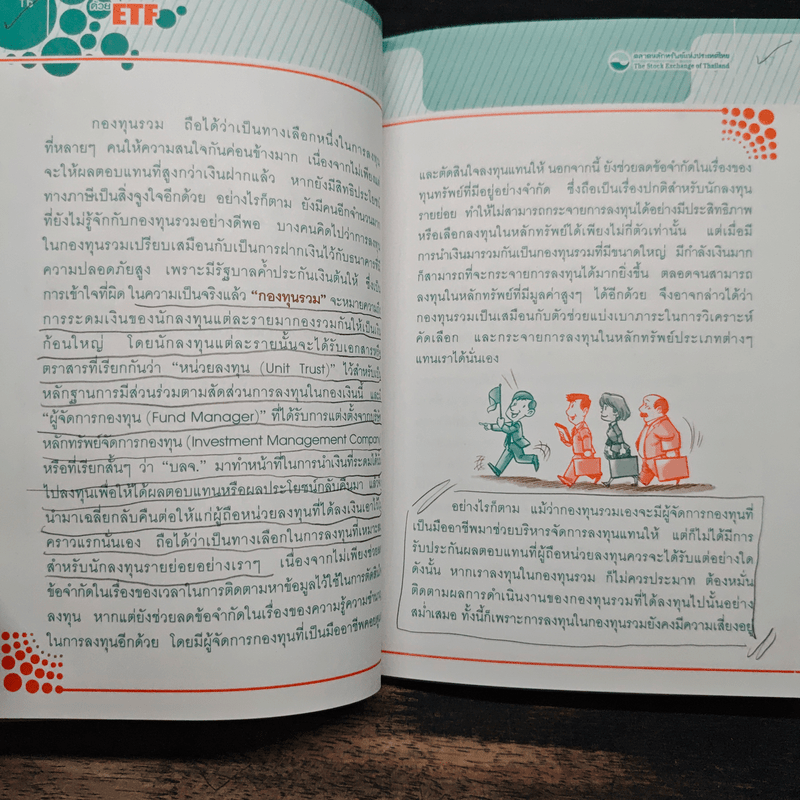 16
ด้วย
ETF
กองทุนรวม ถือได้ว่าเป็นทางเลือกหนึ่งในการลงทุน
ที่หลายๆ คนให้ความสนใจกันค่อนข้างมาก เนื่องจากไม่เพียงแต่
จะให้ผลตอบแทนที่สูงกว่าเงินฝากแล้ว หากยังมีสิทธิประโยชน์
ทางภาษีเป็นสิ่งจูงใจอีกด้วย อย่างไรก็ตาม ยังมีคนอีกจำนวนมาก
ที่ยังไม่รู้จักกับกองทุนรวมอย่างดีพอ บางคนคิดไปว่าการลงทุน
ในกองทุนรวมเปรียบเสมือนกับเป็นการฝากเงินไว้กับธนาคารที่มี
ความปลอดภัยสูง เพราะมีรัฐบาลค้ำประกันเงินต้นให้ ซึ่งเป็น
การเข้าใจที่ผิด ในความเป็นจริงแล้ว “กองทุนรวม” จะหมายความถึง
การระดมเงินของนักลงทุนแต่ละรายมากองรวมกันให้เป็นเงิน
ก้อนใหญ่ โดยนักลงทุนแต่ละรายนั้นจะได้รับเอกสารหรือ
ตราสารที่เรียกกันว่า “หน่วยลงทุน (Unit Trust)” ไว้สำหรับเป็น
หลักฐานการมีส่วนร่วมตามสัดส่วนการลงทุนในกองเงินนี้ และมี
“ผู้จัดการกองทุน (Fund Manager)” ที่ได้รับการแต่งตั้งจากบริษัท
หลักทรัพย์จัดการกองทุน (Investment Management Company)
หรือที่เรียกสั้นๆ ว่า “บลจ.” มาทำหน้าที่ในการนำเงินที่ระดมได้นั้น
ไปลงทุนเพื่อให้ได้ผลตอบแทนหรือผลประโยชน์กลับคืนมา แล้วจึง
นำมาเฉลี่ยกลับคืนต่อให้แก่ผู้ถือหน่วยลงทุนที่ได้ลงเงินเอาไว้ใน
คราวแรกนั่นเอง ถือได้ว่าเป็นทางเลือกในการลงทุนที่เหมาะสม
สำหรับนักลงทุนรายย่อยอย่างเราๆ เนื่องจากไม่เพียงช่วยลด
ข้อจำกัดในเรื่องของเวลาในการติดตามหาข้อมูลไว้ใช้ในการตัดสินใจ
ลงทุน หากแต่ยังช่วยลดข้อจำกัดในเรื่องของความรู้ความชำนาญ
ในการลงทุนอีกด้วย โดยมีผู้จัดการกองทุนที่เป็นมืออาชีพคอยดูแล
ตลาดหลักทรัพย์แห่งประเทศไทย
The Stock Exchange of Thailand
และตัดสินใจลงทุนแทนให้ นอกจากนี้ ยังช่วยลดข้อจำกัดในเรื่องของ
ทุนทรัพย์ที่มีอยู่อย่างจำกัด ซึ่งถือเป็นเรื่องปกติสำหรับนักลงทุน
รายย่อย ทำให้ไม่สามารถกระจายการลงทุนได้อย่างมีประสิทธิภาพ
หรือเลือกลงทุนในหลักทรัพย์ได้เพียงไม่กี่ตัวเท่านั้น แต่เมื่อมี
การนำเงินมารวมกันเป็นกองทุนรวมที่มีขนาดใหญ่ มีกำลังเงินมาก
ก็สามารถที่จะกระจายการลงทุนได้มากยิ่งขึ้น ตลอดจนสามารถ
ลงทุนในหลักทรัพย์ที่มีมูลค่าสูงๆ ได้อีกด้วย จึงอาจกล่าวได้ว่า
กองทุนรวมเป็นเสมือนกับตัวช่วยแบ่งเบาภาระในการวิเคราะห์
คัดเลือก และกระจายการลงทุนในหลักทรัพย์ประเภทต่างๆ
แทนเราได้นั่นเอง
อย่างไรก็ตาม แม้ว่ากองทุนรวมเองจะมีผู้จัดการกองทุนที่
เป็นมืออาชีพมาช่วยบริหารจัดการลงทุนแทนให้ แต่ก็ไม่ได้มีการ
รับประกันผลตอบแทนที่ผู้ถือหน่วยลงทุนควรจะได้รับแต่อย่างใด
ดังนั้น หากเราลงทุนในกองทุนรวม ก็ไม่ควรประมาท ต้องหมั่น
ติดตามผลการดำเนินงานของกองทุนรวมที่ได้ลงทุนไปนั้นอย่าง
สม่ำเสมอ ทั้งนี้ก็เพราะการลงทุนในกองทุนรวมยังคงมีความเสี่ยงอยู่